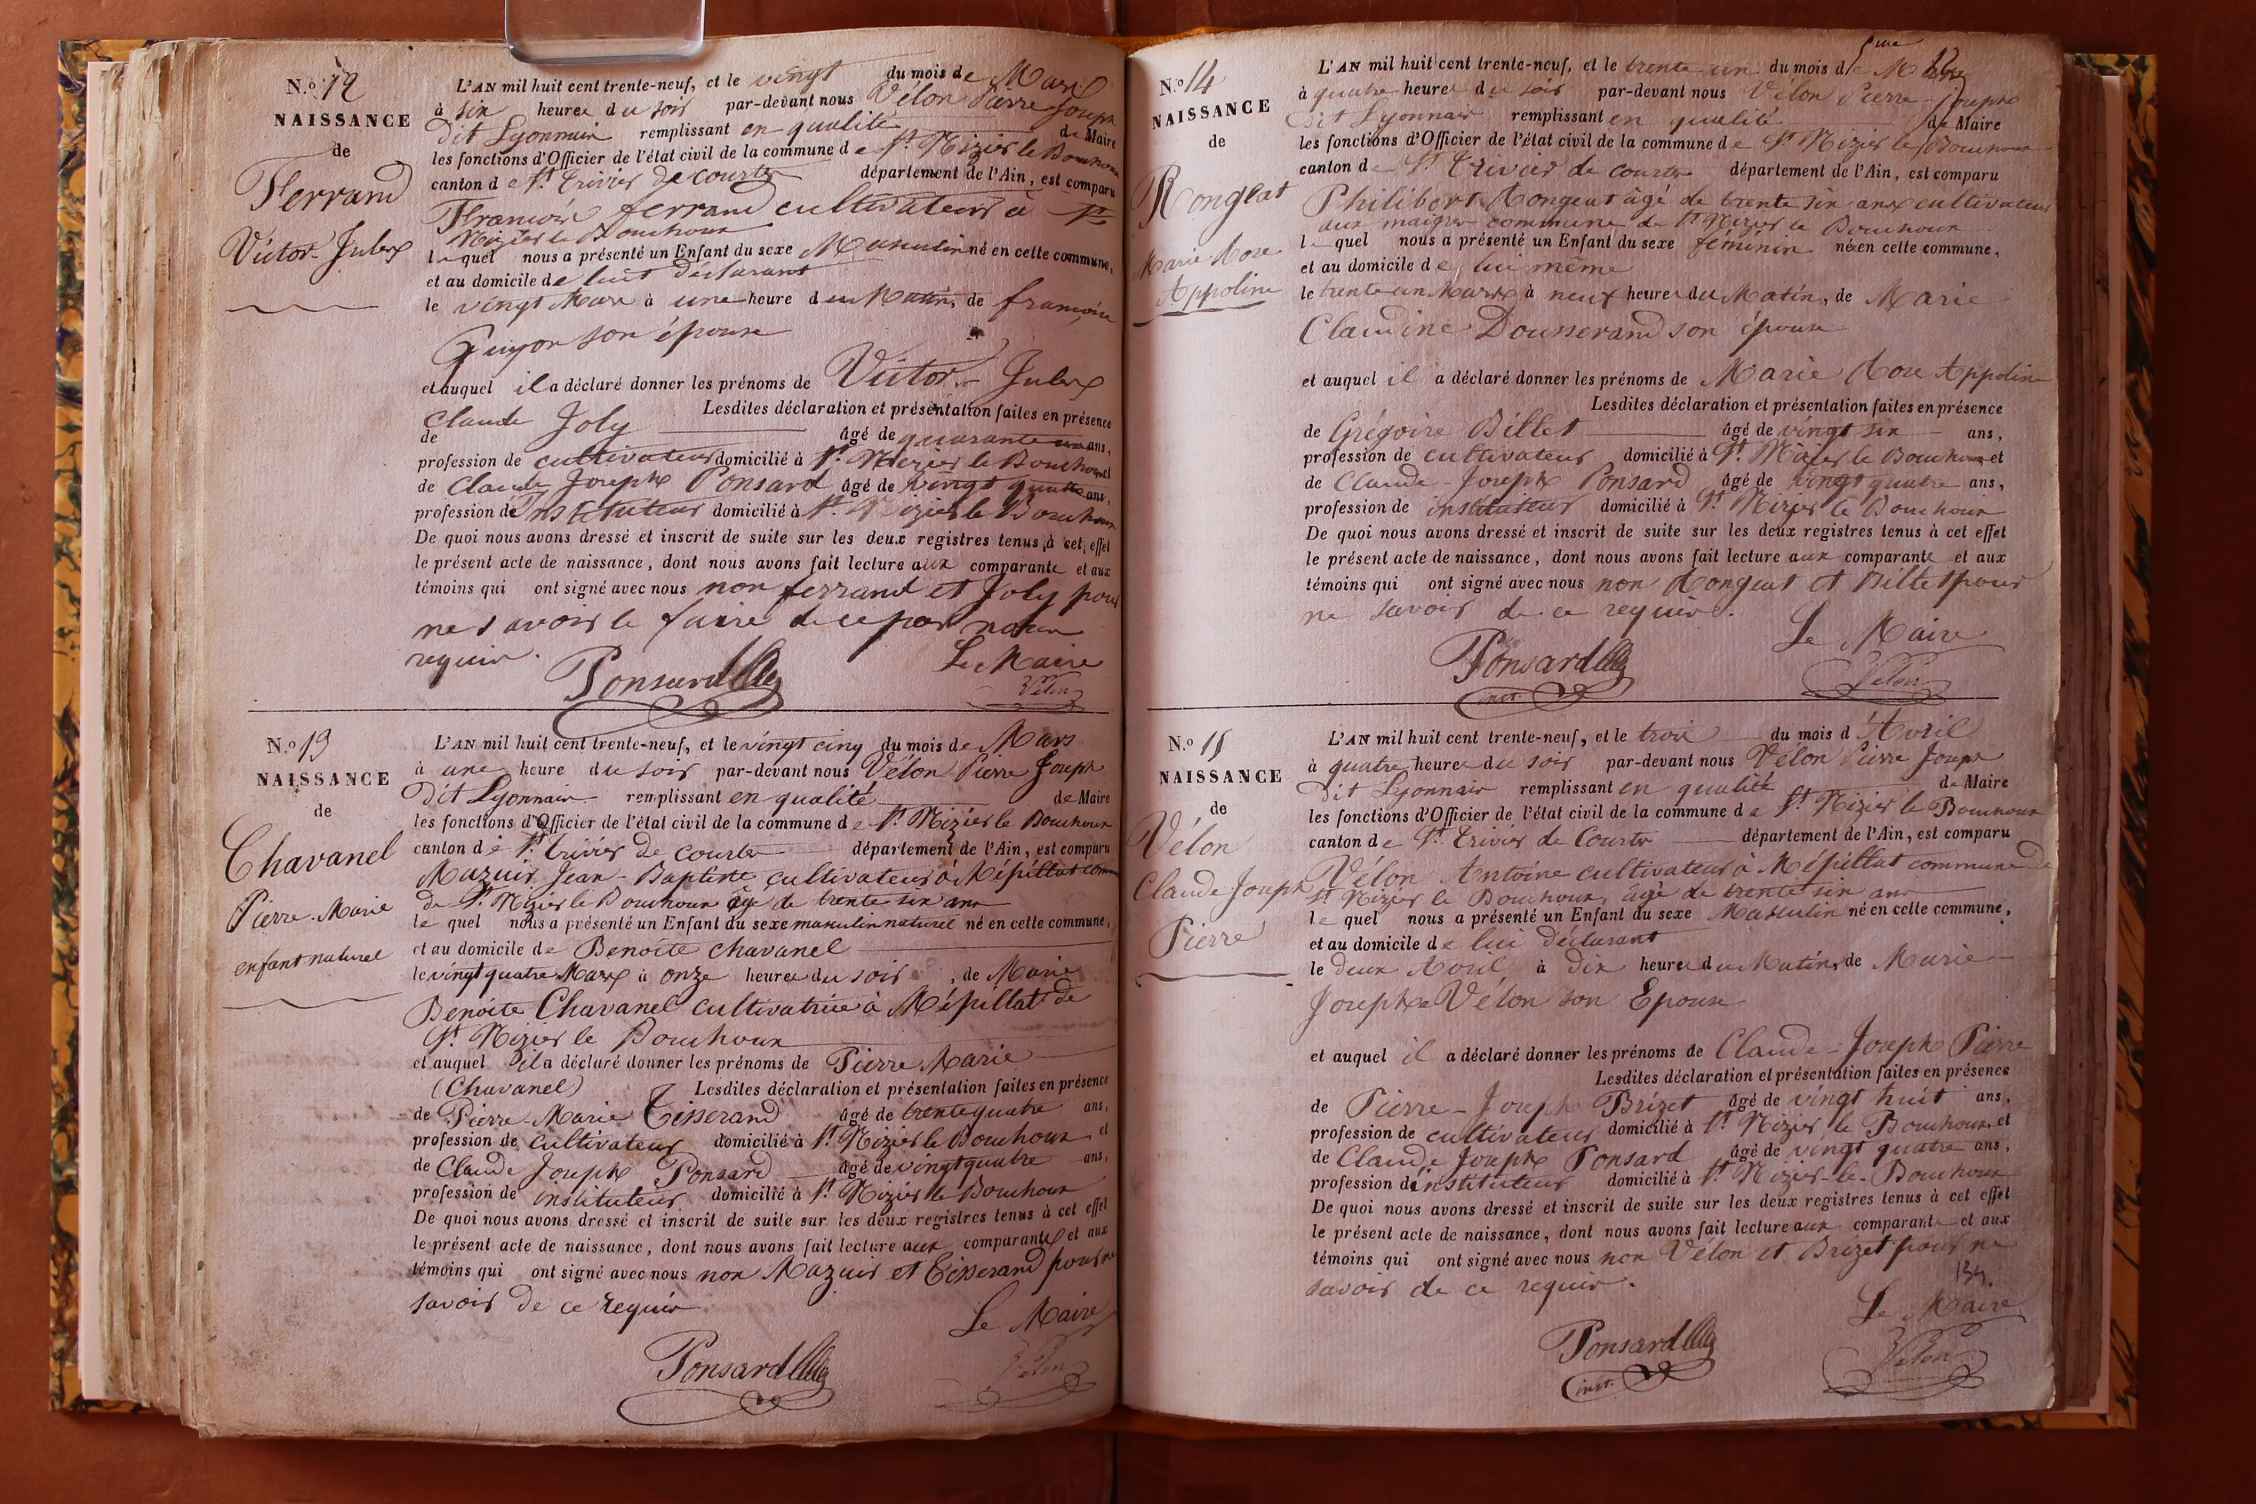 N.º 12
NAISSANCE
de
Ferrand
Victor Jules
L'AN mil huit cent trente-neuf, et le vingt du mois de Mars
à six heures du soir par-devant nous Vélon Pierre Joseph
dit Lyonnais remplissant en qualité de Maire
les fonctions d'Officier de l'état civil de la commune de St. Nizier le Bouchoux
canton de St. trivier de courtes département de l'Ain, est comparu
François ferrand cultivateur à St
Nizier le Bouchoux
le quel nous a présenté un Enfant du sexe Masculin né en cette commune,
et au domicile de lui déclarant
le vingt Mars à une heure du Matin, de françoise
Guyon son épouse
et auquel il a déclaré donner les prénoms de Victor - Jules
Lesdites déclaration et présentation faites en présence
de Claude Joly âgé de quarante ans,
profession de cultivateur domicilié à St. Nizier le Bouchoux et
de Claude Joseph Ponsard âgé de vingt quatre ans,
profession de Instituteur domicilié à St. Nizier le Bouchoux
De quoi nous avons dressé et inscrit de suite sur les deux registres tenus à cet effet
le présent acte de naissance, dont nous avons fait lecture aux comparants et aux
témoins qui ont signé avec nous non ferrand et Joly pour
ne savoir le faire de ce par nous
requis.
Le Maire
Ponsard
Vélon
N.º 13
NAISSANCE
de
Chavanel
Pierre Marie
enfant naturel
L'AN mil huit cent trente-neuf, et le vingt cinq du mois de Mars
à une heure du soir par-devant nous Vélon Pierre Joseph
Dit Lyonnais remplissant en qualité de Maire
les fonctions d'Officier de l'état civil de la commune de St. Nizier le Bouchoux
canton de St. trivier de courtes département de l'Ain, est comparu
Mazuir Jean-Baptiste cultivateur à Mépillat com
de St. Nizier le Bouchoux âgé de trente six ans
le quel nous a présenté un Enfant du sexe masculin naturel né en cette commune,
et au domicile de Benoite chavanel
le vingt quatre Mars à onze heures du soir, de Marie
Benoite Chavanel cultivatrice à Mépillat de
St. Nizier le Bouchoux
et auquel il a déclaré donner les prénoms de Pierre Marie
(Chavanel) Lesdites déclaration et présentation faites en présence
de Pierre-Marie Tisserand âgé de trente quatre ans,
profession de cultivateur domicilié à St. Nizier le Bouchoux et
de Claude Joseph Ponsard âgé de vingt quatre ans,
profession de instituteur domicilié à St. Nizier le Bouchoux
De quoi nous avons dressé et inscrit de suite sur les deux registres tenus à cet effet
le présent acte de naissance, dont nous avons fait lecture aux comparants et aux
témoins qui ont signé avec nous non Mazuir et Tisserand pour ne
savoir de ce requis
Le Maire
Ponsard
Vélon
5me
N.º 14
NAISSANCE
de
Rongeat
Marie Rose
Appoline
L'AN mil huit cent trente-neuf, et le trente un du mois de Mars
à quatre heures du soir par-devant nous Vélon Pierre-Joseph
Dit Lyonnais remplissant en qualité de Maire
les fonctions d'Officier de l'état civil de la commune de St. Nizier le Bouchoux
canton de St. trivier de courtes département de l'Ain, est comparu
Philibert Rongeat âgé de trente six ans cultivateur
aux maigres commune de St Nizier le Bouchoux
le quel nous a présenté un Enfant du sexe féminin né en cette commune,
et au domicile de lui même
le trente un Mars à neuf heures du Matin, de Marie
Claudine Dousserand son épouse
et auquel il a déclaré donner les prénoms de Marie Rose Appoline
Lesdites déclaration et présentation faites en présence
de Grégoire Billet âgé de vingt six ans,
profession de cultivateur domicilié à St. Nizier le Bouchoux et
de Claude-Joseph Ponsard âgé de vingt quatre ans,
profession de instituteur domicilié à St. Nizier le Bouchoux
De quoi nous avons dressé et inscrit de suite sur les deux registres tenus à cet effet
le présent acte de naissance, dont nous avons fait lecture aux comparants et aux
témoins qui ont signé avec nous non Rongeat et Billet pour
ne savoir de ce requis.
Le Maire
Ponsard
inst.
Vélon
N.º 15
NAISSANCE
de
Vélon
Claude Joseph
Pierre
L'AN mil huit cent trente-neuf, et le trois du mois d'Avril
à quatre heures du soir par-devant nous Vélon Pierre Joseph
Dit Lyonnais remplissant en qualité de Maire
les fonctions d'Officier de l'état civil de la commune de St. Nizier le Bouchoux
canton de St. trivier de Courtes département de l'Ain, est comparu
Vélon Antoine cultivateur à Mépillat commune de
St. Nizier le Bouchoux, âgé de trente six ans
le quel nous a présenté un Enfant du sexe Masculin né en cette commune,
et au domicile de lui déclarant
le deux Avril à dix heures du Matin, de Marie
Josephe Vélon son Epouse
et auquel il a déclaré donner les prénoms de Claude-Joseph Pierre
Lesdites déclaration et présentation faites en présence
de Pierre-Joseph Brizet âgé de vingt huit ans,
profession de cultivateur domicilié à St. Nizier le Bouchoux, et
de Claude Joseph Ponsard âgé de vingt quatre ans,
profession d'instituteur domicilié à St. Nizier-le-Bouchoux
De quoi nous avons dressé et inscrit de suite sur les deux registres tenus à cet effet
le présent acte de naissance, dont nous avons fait lecture aux comparants et aux
témoins qui ont signé avec nous non Vélon et Brizet pour ne
savoir de ce requis.
Le Maire
Ponsard
inst.
Vélon